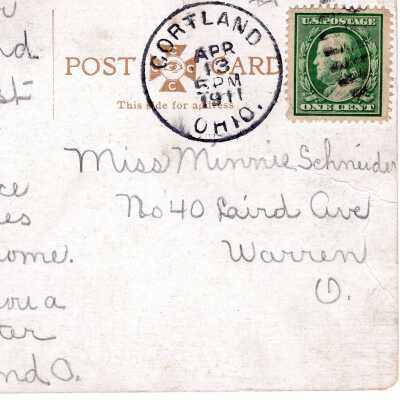 CORTLAND
APR
13
5 PM
1911
OHIO.
U.S. POSTAGE
ONE CENT
POST CARD
This side for address
Miss Minnie Schnieder
No 40 Laird Ave
Warren
O.
ome.
ou a
ter
nd O.